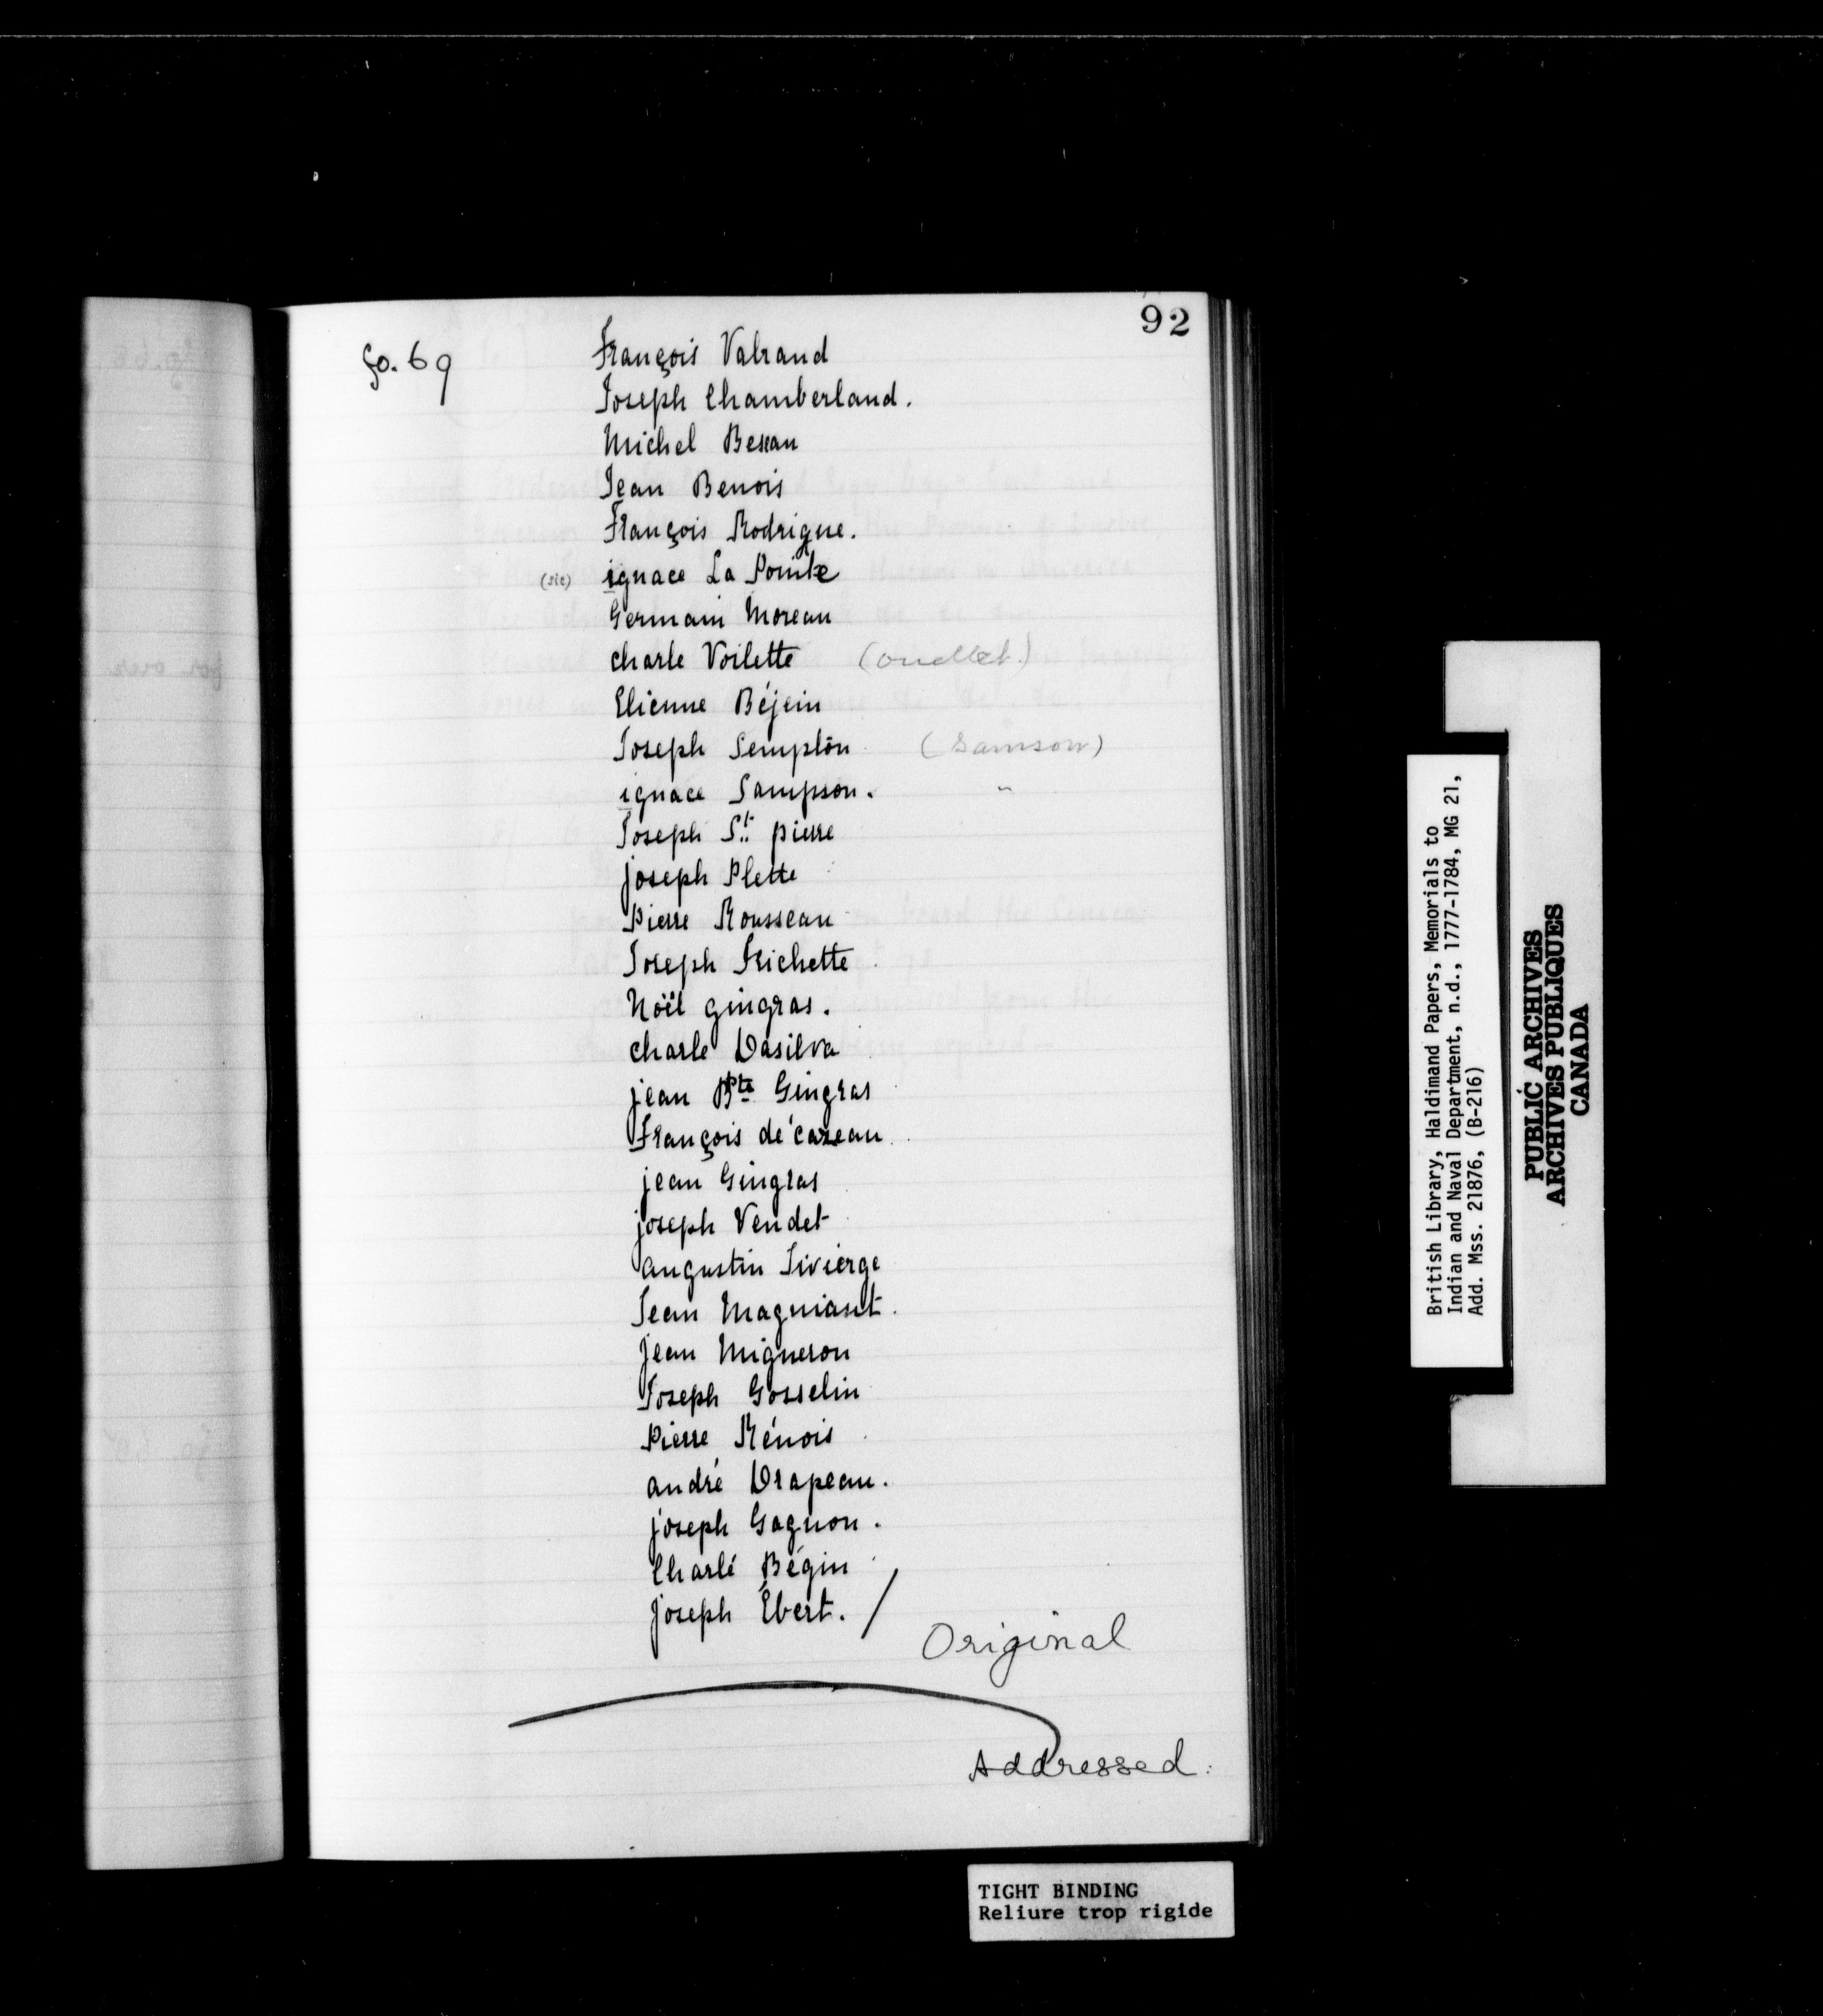 92
fo. 69
François Valrand
Joseph Chamberland.
Michel Besean
Jean Benois
François Rodrigue.
(sic) ignace La Pointe
Germain Moreau
charle Voilette (ouellet.)
Etienne Béjein
Joseph Semptön (Samson)
ignace Sampson. "
Joseph St. pierre
joseph Plette
Pierre Rousseau
Joseph Frichette
Noël gingras.
charle Dasilva
jean Bte Gingras
François dé'careau
jean Gingras
joseph Vendet
augustin Sivierge
Jean Magniant.
jean Migneron
Joseph Gosselin
Pierre Rénois
andré Drapeau.
joseph Gagnon.
Charlé Bégin
joseph Ébert. /
Original
Addressed:
British Library, Haldimand Papers, Memorials to
Indian and Naval Department, n.d., 1777-1784, MG 21,
Add. Mss. 21876, (B-216)
PUBLIC ARCHIVES
ARCHIVES PUBLIQUES
CANADA
TIGHT BINDING
Reliure trop rigide